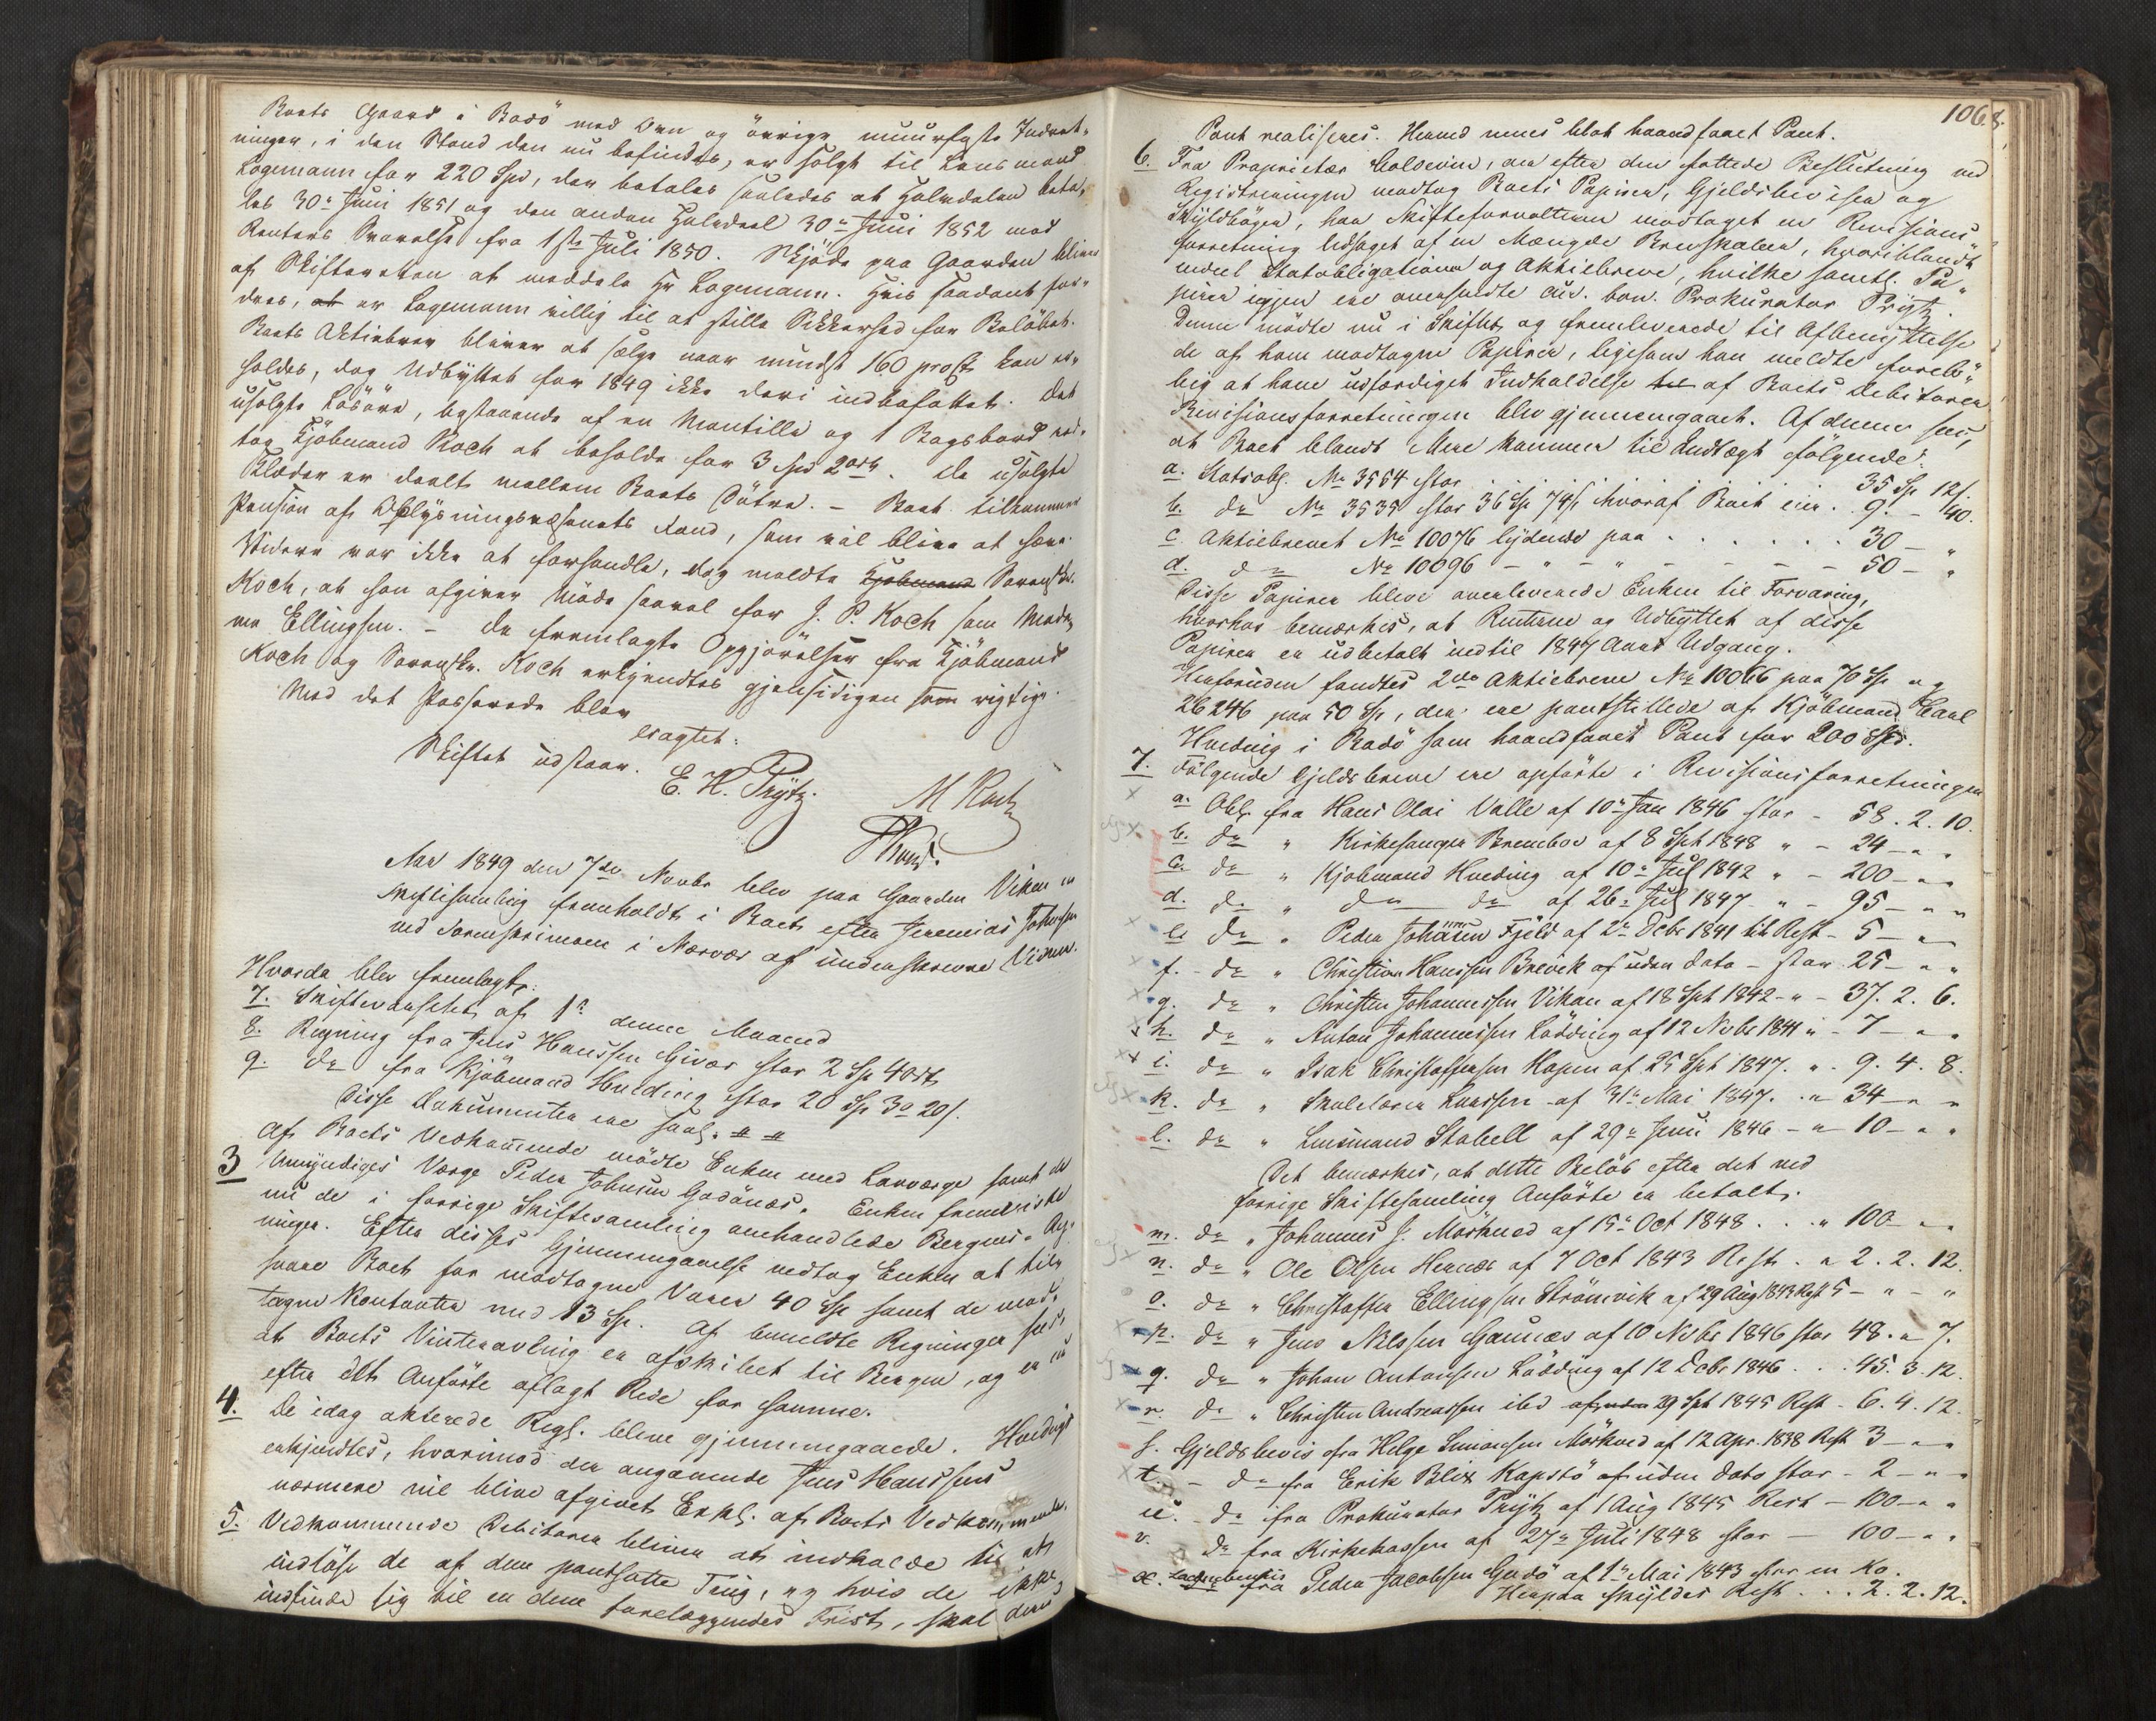 Boets Gaard i Bodö med Ovn og övrige muurfaste Indret-
ninger, i den Stand den nu befindes, er solgt til Lensmand
Lagemann for 220 Spd, der betales saaledes at Halvdelen beta-
les 30te Juni 1851 og den anden Halvdeel 30te Juni 1852 med
Renters Svarelse fra 1ste Juli 1850. Skjöde paa Gaarden bliver
af Skifteretten at meddele Hr Lagemann. Hvis saadant for-
dres, at er Lagemann villig til at stille Sikkerhed for Belöbet.
Boets Aktiebrev bliver at sælge naar mindst 160 procent kan er-
holdes, dog Udbyttet for 1849 ikke deri indbefattet. Det
usolgte Lösöre, bestaaende af en Mantille og 1 Bagsbord ved-
tog Kjöbmand Koch at beholde for 3 Spd 2 ort. De usolgte
Klæder er deelt mellem Boets Dötre. – Boet tilkommer
Pension af Oplysningsvæsenets Fond, som vil blive at hæve.
Videre var ikke at forhandle, dog meldte Kjöbmand Sorenskr.
Koch, at han afgiver Möde saavel for J. P. Koch som Mada-
me Ellingsen. – De fremlagte Opgjörelser fra Kjöbmand
Koch og Sorenskr. Koch erkjendtes gjensidigen som rigtige.
Med det Passerede blev
eragtet:
Skiftet udstaar.
E. H. Prytz. M Koch
Aar 1849 den 7de Novbr blev paa Gaarden Vikan en
Skiftesamling fremholdt i Boet efter Jeremias Johnsen
ved Sorenskriveren i Nærvær af underskrevne Vidner.
Hvorda blev fremlagt:
7. Skiftevarselet af 1ste denne Maaned
8. Regning fra Jens Hanssen Givær stor 2 Sp 4 ort
9. do fra Kjöbmand Hveding stor 20 Sp 3 o 20 s.
Disse Dokumenter ere saal. " "
Af Boets Vedkommende mödte Enken med Lavværge samt de
3 Umyndiges Værge Peder Johnsen Godönæs. Enken fremviste
nu de i forrige Skiftesamling omhandlede Bergens-Reg-
ninger. Efter disses Gjennemgaaelse vedtog Enken at til-
svare Boet for modtagne Varer 40 Sp samt de mod-
tagne Kontanter med 13 Sp. Af bemeldte Regninger sees,
at Boets Vinteravling er afskibet til Bergen, og er nu
efter det Anförte aflagt Rede for samme.
4. De idag akterede Regl. bleve gjennemgaaede. Hvedings
erkjendtes, hvorimod der angaaende Jens Hanssens
nærmere vil blive afgivet Erkl. af Boets Vedkommende.
5. Vedkommende Debitorer bliver at indkalde til at
indlöse de af dem pantsatte Ting, og hvis de ikke
indfinde sig til en dem forelæggendes Frist, skal deres
1068.
Pant realiseres. Hermed menes blot haandfaaet Pant.
6. Fra Proprietær Coldevin, der efter den fattede Beslutning ved
Registreringen modtog Boets Papirer, Gjeldsbeviser og
Skyldböger, har Skifteforvalteren modtaget en Revisions-
forretning ledsaget af en Mængde Brevskaber, hvoriblandt
endeel Statsobligationer og Aktiebreve, hvilke samtl. Pa-
pirer igjen ere oversendte cur. bon. Prokurator Prytz.
Denne mödte nu i Skiftet og fremleverede til Afbenyttelse
de af ham modtagne Papirer, ligesom han meldte forelö-
big at have udfærdiget Indkaldelse til af Boets Debitorer
Revisionsforretningen blev gjennemgaaet. Af denne sees,
at Boet blandt Mere kommer til Indtægt följende:
a. Statsobl. No 3554 stor . . . . . 35 Sp 12 s.
b. do No 3535 stor 36 Sp 74 s, hvoraf Boet eier . 9. – 40.
c. Aktiebrevet No 10076 lydende paa . . . . . . 30 – "
d. do No 10096 – " – " – – – – 50 – "
Disse Papirer bleve overleverede Enken til Forvaring,
hvorhos bemærkes, at Renterne og Udbyttet af disse
Papirer er udbetalt indtil 1847 Aars Udgang.
Henforuden fandtes 2de Aktiebreve No 10066 paa 70 Sp og
26246 paa 50 Sp, der ere pantstillede af Kjöbmand Carl
Hveding i Bodö som haandfaaet Pant for 200 Spd.
7. Fölgende Gjeldsbreve ere opförte i Revisionsforretningen
a. Obl. fra Hans Olai Valle af 10de Jan 1846 stor – 58. 2. 10.
b. do " Kirkesanger Brembo af 8 Sept 1848 " – 24 – " "
c. do " Kjöbmand Hveding af 10de Jul 1842 " – 200 – " "
d. do " do do af 26de Jul 1847 " – 95 – " "
e. do " Peder Johansen Fjeld af 2de Debr 1841 til Rest – 5 – " "
f. do " Christian Hanssen Brevik af uden dato – stor 25 – " "
g. do " Christen Johannessen Vikan af 18 Sept 1842 – " – 37. 2. 6.
h. do " Anton Johannessen Lödding af 12 Novbr 1844 " – 7 – " "
i. do " Isak Christoffersen Kopen af 25 Sept 1847. " . 9. 4. 8.
k. do " Skolelærer Larssen af 31te Mai 1847. " 34 – " "
l. do " Lensmand Stabell af 29de Juni 1846 – " 10 – " "
Det bemærkes, at dette Belöb efter det ved
forrige Skiftesamling Anförte er betalt.
m. do " Johannes J. Mörkved af 15de Oct 1848 . . . " 100 " "
n. do " Ole Olsen Hernæs af 7 Oct 1843 Rest . " 2. 2. 12.
o. do " Christoffer Ellingsen Strömvik af 29 Aug 1843 Rest 5 – " – "
p. do " Jens Nilssen Gaunæs af 10 Novbr 1846 stor 48. " 7.
q. do " Johan Antonsen Lödding af 12 Debr 1846 . . . 45. 3. 12.
r. do " Christen Andreassen ibd af uden 29 Sept 1845 Rest – 6. 4. 12.
s. Gjeldsbevis fra Helge Simonsen Mörkved af 12 Apr. 1838 Rest 3 – " "
t. – do fra Erik Blix Kopstö af uden dato stor – 2 – " "
u. – do fra Prokurator Prytz af 1 Aug 1845 Rest – 100 – " "
v. do fra Kirkekassen af 27de Juli 1848 stor – 100 – " "
x. fra Peder Jacobsen Godö af 1ste Mai 1843 stor en Ko.
Herpaa skyldes Rest . . . 2. 2. 12.